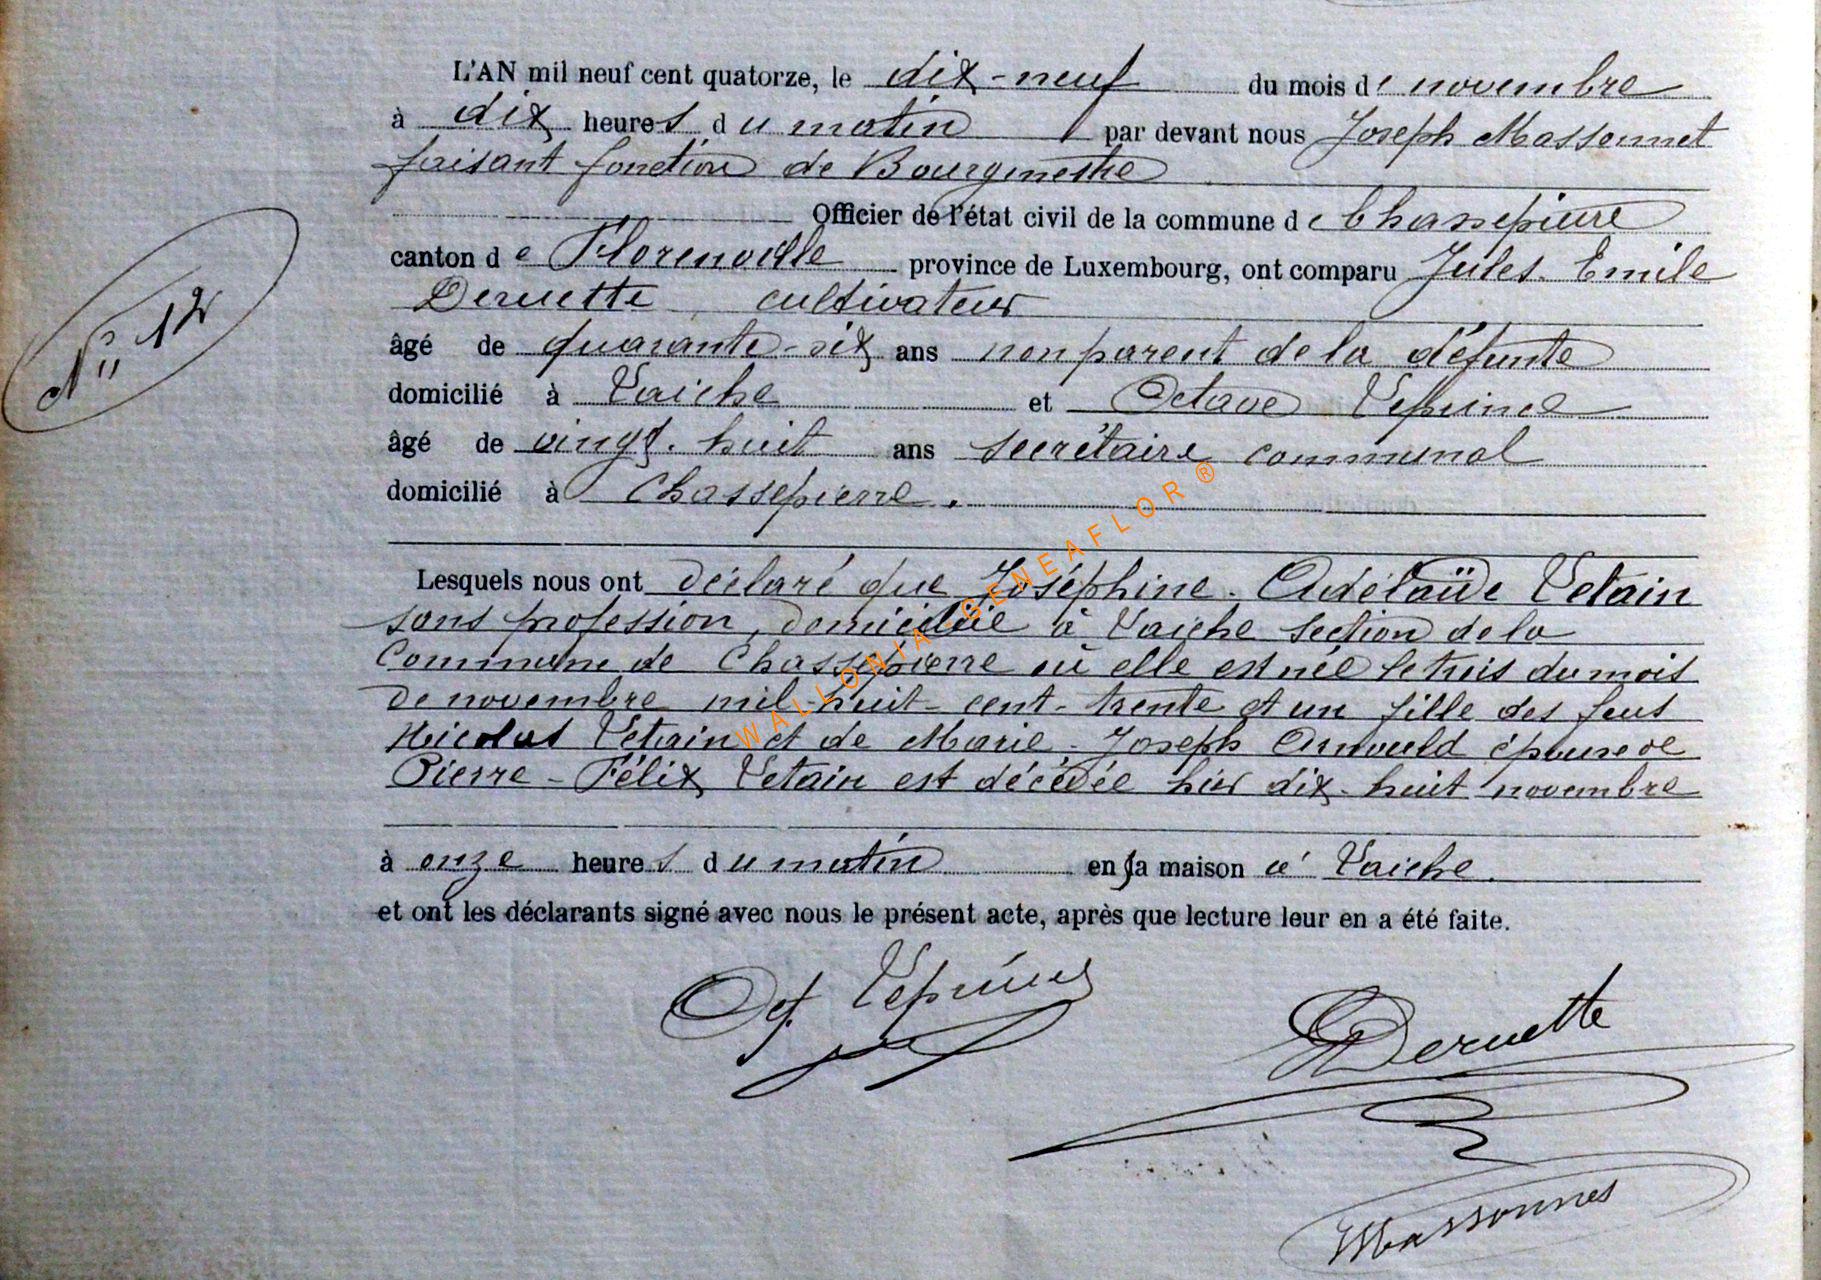 L'AN mil neuf cent quatorze, le dix-neuf du mois de novembre
à dix heures du matin par devant nous Joseph Massonnet
faisant fonction de Bourgmestre
Officier de l'état civil de la commune de Chassepierre
canton de Florenville province de Luxembourg, ont comparu Jules-Emile
Deruette, cultivateur
âgé de quarante-six ans non parent de la défunte
domicilié à Laiche et Octave Leprince
âgé de vingt-huit ans secrétaire communal
domicilié à Chassepierre.
N° 12
Lesquels nous ont déclaré que Joséphine-Adélaïde Letain
sans profession, domiciliée à Laiche section de la
Commune de Chassepierre où elle est née le trois du mois
de novembre mil-huit-cent-trente et un fille des feus
Nicolas Letain et de Marie-Joseph Arnould épouse de
Pierre-Félix Letain est décédée hier dix-huit novembre
à onze heures du matin en sa maison à Laiche.
et ont les déclarants signé avec nous le présent acte, après que lecture leur en a été faite.
Oct. Leprince
Deruette
Massonnet
WALLONIA-GENEAFLOR ®